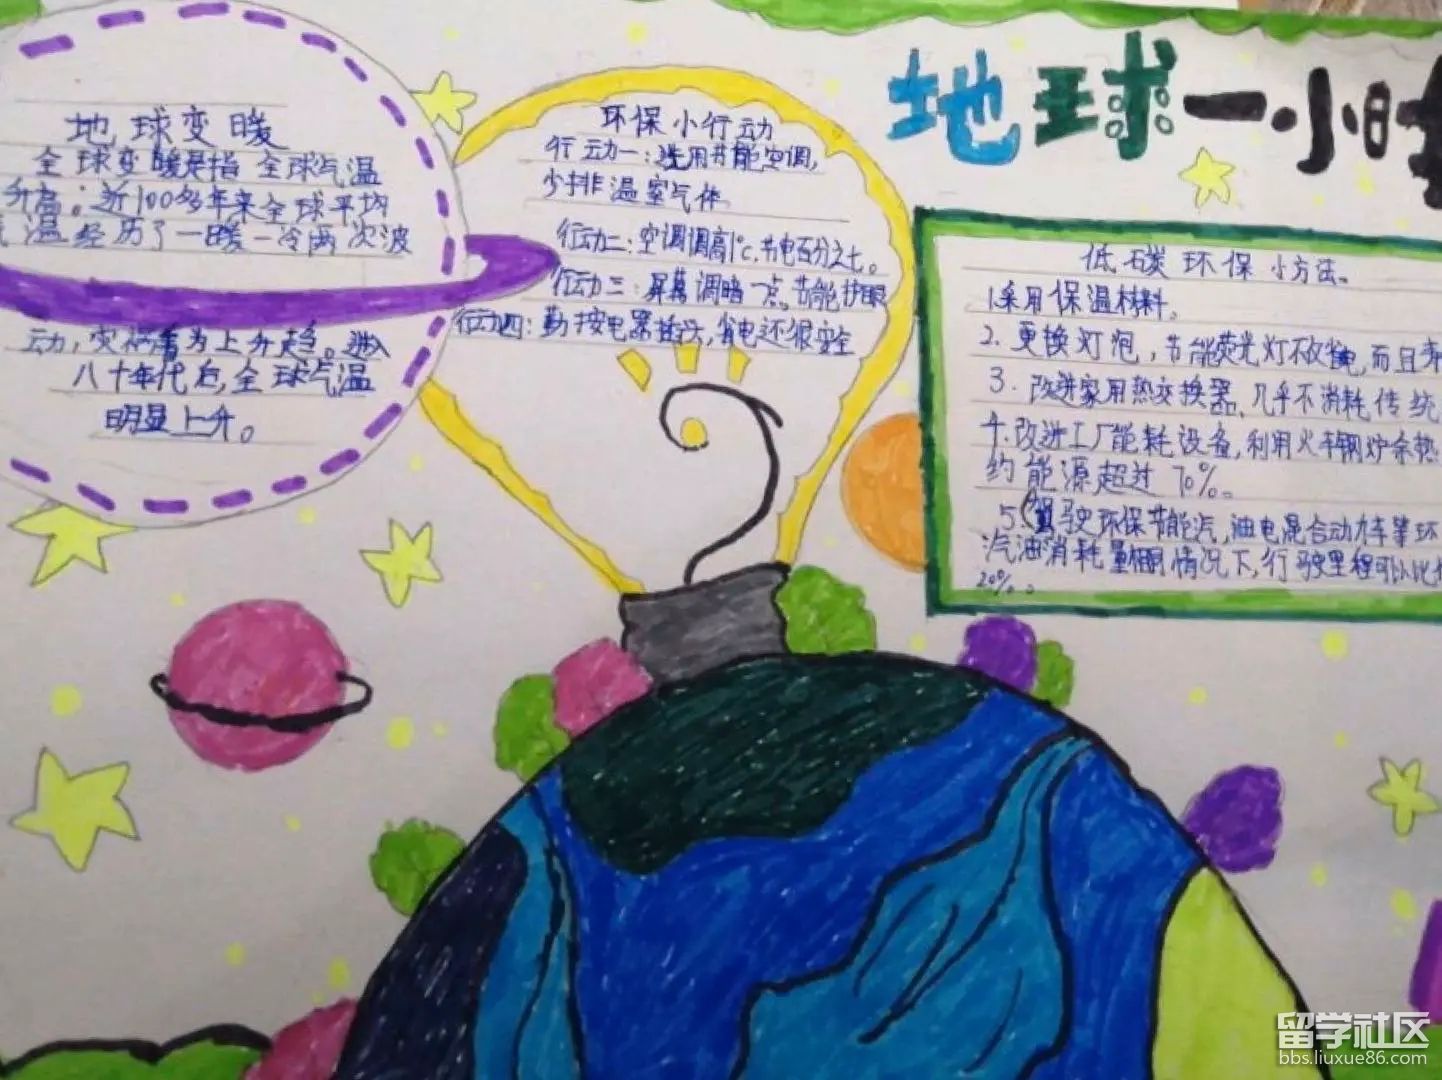 地球一小时
地球变暖
全球变暖是指全球气温
升高：近100多年来全球平均
气温经历了一暖一冷两次波
动，灾祸看为上升趋。进入
八十年代后，全球气温
明显上升。
环保小行动
行动一：选用节能空调，
少排温室气体。
行动二：空调调高1℃，节电百分之七。
行动三：屏幕调暗一点。节能护眼
行动四：勤按电器插头，省电还很安全
低碳环保小方法。
1.采用保温材料。
2.更换灯泡，节能荧光灯不仅省电，而且寿
3.改进家用热交换器，几乎不消耗传统
4.改进工厂能耗设备，利用火车钢炉余热
约能源超过70%。
5.驾驶环保节能汽，油电混合动力车等环
汽油消耗量相同情况下，行驶里程可以比
20%。
留学社区
bbs.liuxue86.com